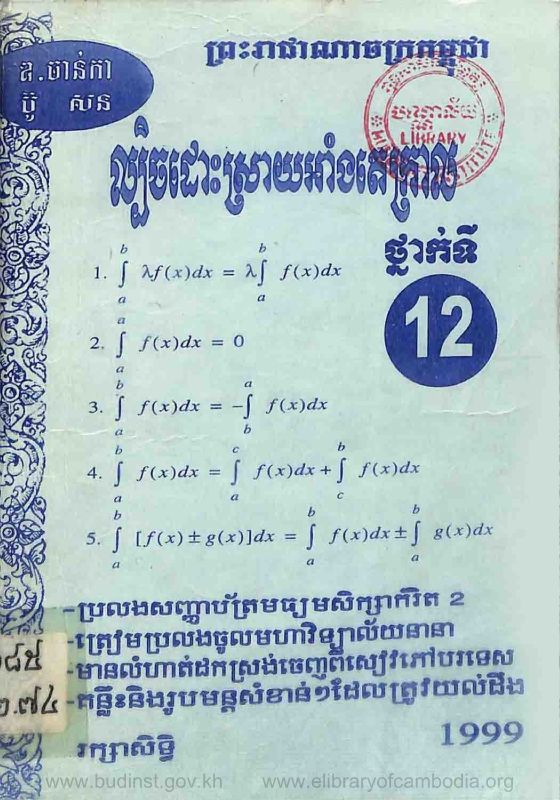 ព្រះរាជាណាចក្រកម្ពុជា
ឌ.ចាន់កា
ប៊ូ សន
បណ្ណាល័យ
LIBRARY
ល្បិចដោះស្រាយអាំងតេក្រាល
ថ្នាក់ទី
12
1. ∫ₐᵇ λf(x)dx = λ∫ₐᵇ f(x)dx
2. ∫ₐᵃ f(x)dx = 0
3. ∫ₐᵇ f(x)dx = -∫_b^a f(x)dx
4. ∫ₐᵇ f(x)dx = ∫ₐᶜ f(x)dx + ∫_c^b f(x)dx
5. ∫ₐᵇ [f(x) ± g(x)]dx = ∫ₐᵇ f(x)dx ± ∫ₐᵇ g(x)dx
-ប្រលងសញ្ញាប័ត្រមធ្យមសិក្សាកំរិត 2
-ត្រៀមប្រលងចូលមហាវិទ្យាល័យនានា
-មានលំហាត់ដកស្រង់ចេញពីសៀវភៅបរទេស
-គន្លឹះនិងរូបមន្តសំខាន់ៗដែលត្រូវយល់ដឹង
រក្សាសិទ្ធិ
1999
www.budinst.gov.kh
www.elibraryofcambodia.org